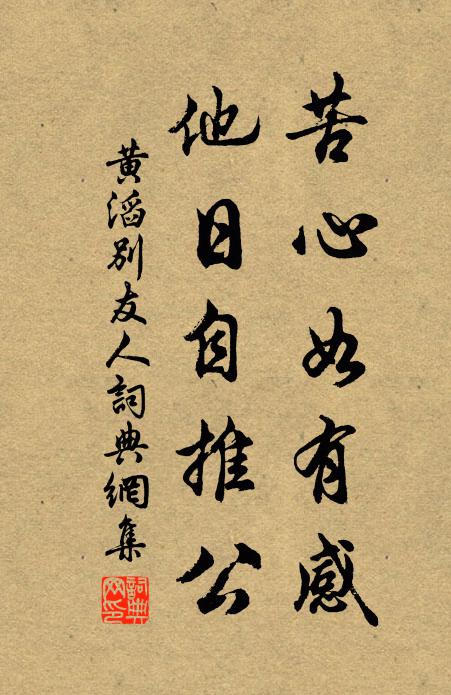 苦心如有感
他日自推公
黄滔别友人詞典網集
詞典网印